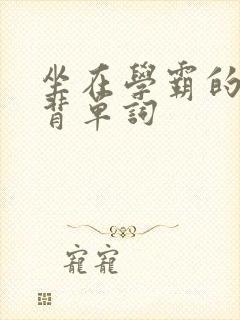 坐在學霸的
背單詞
寵寵